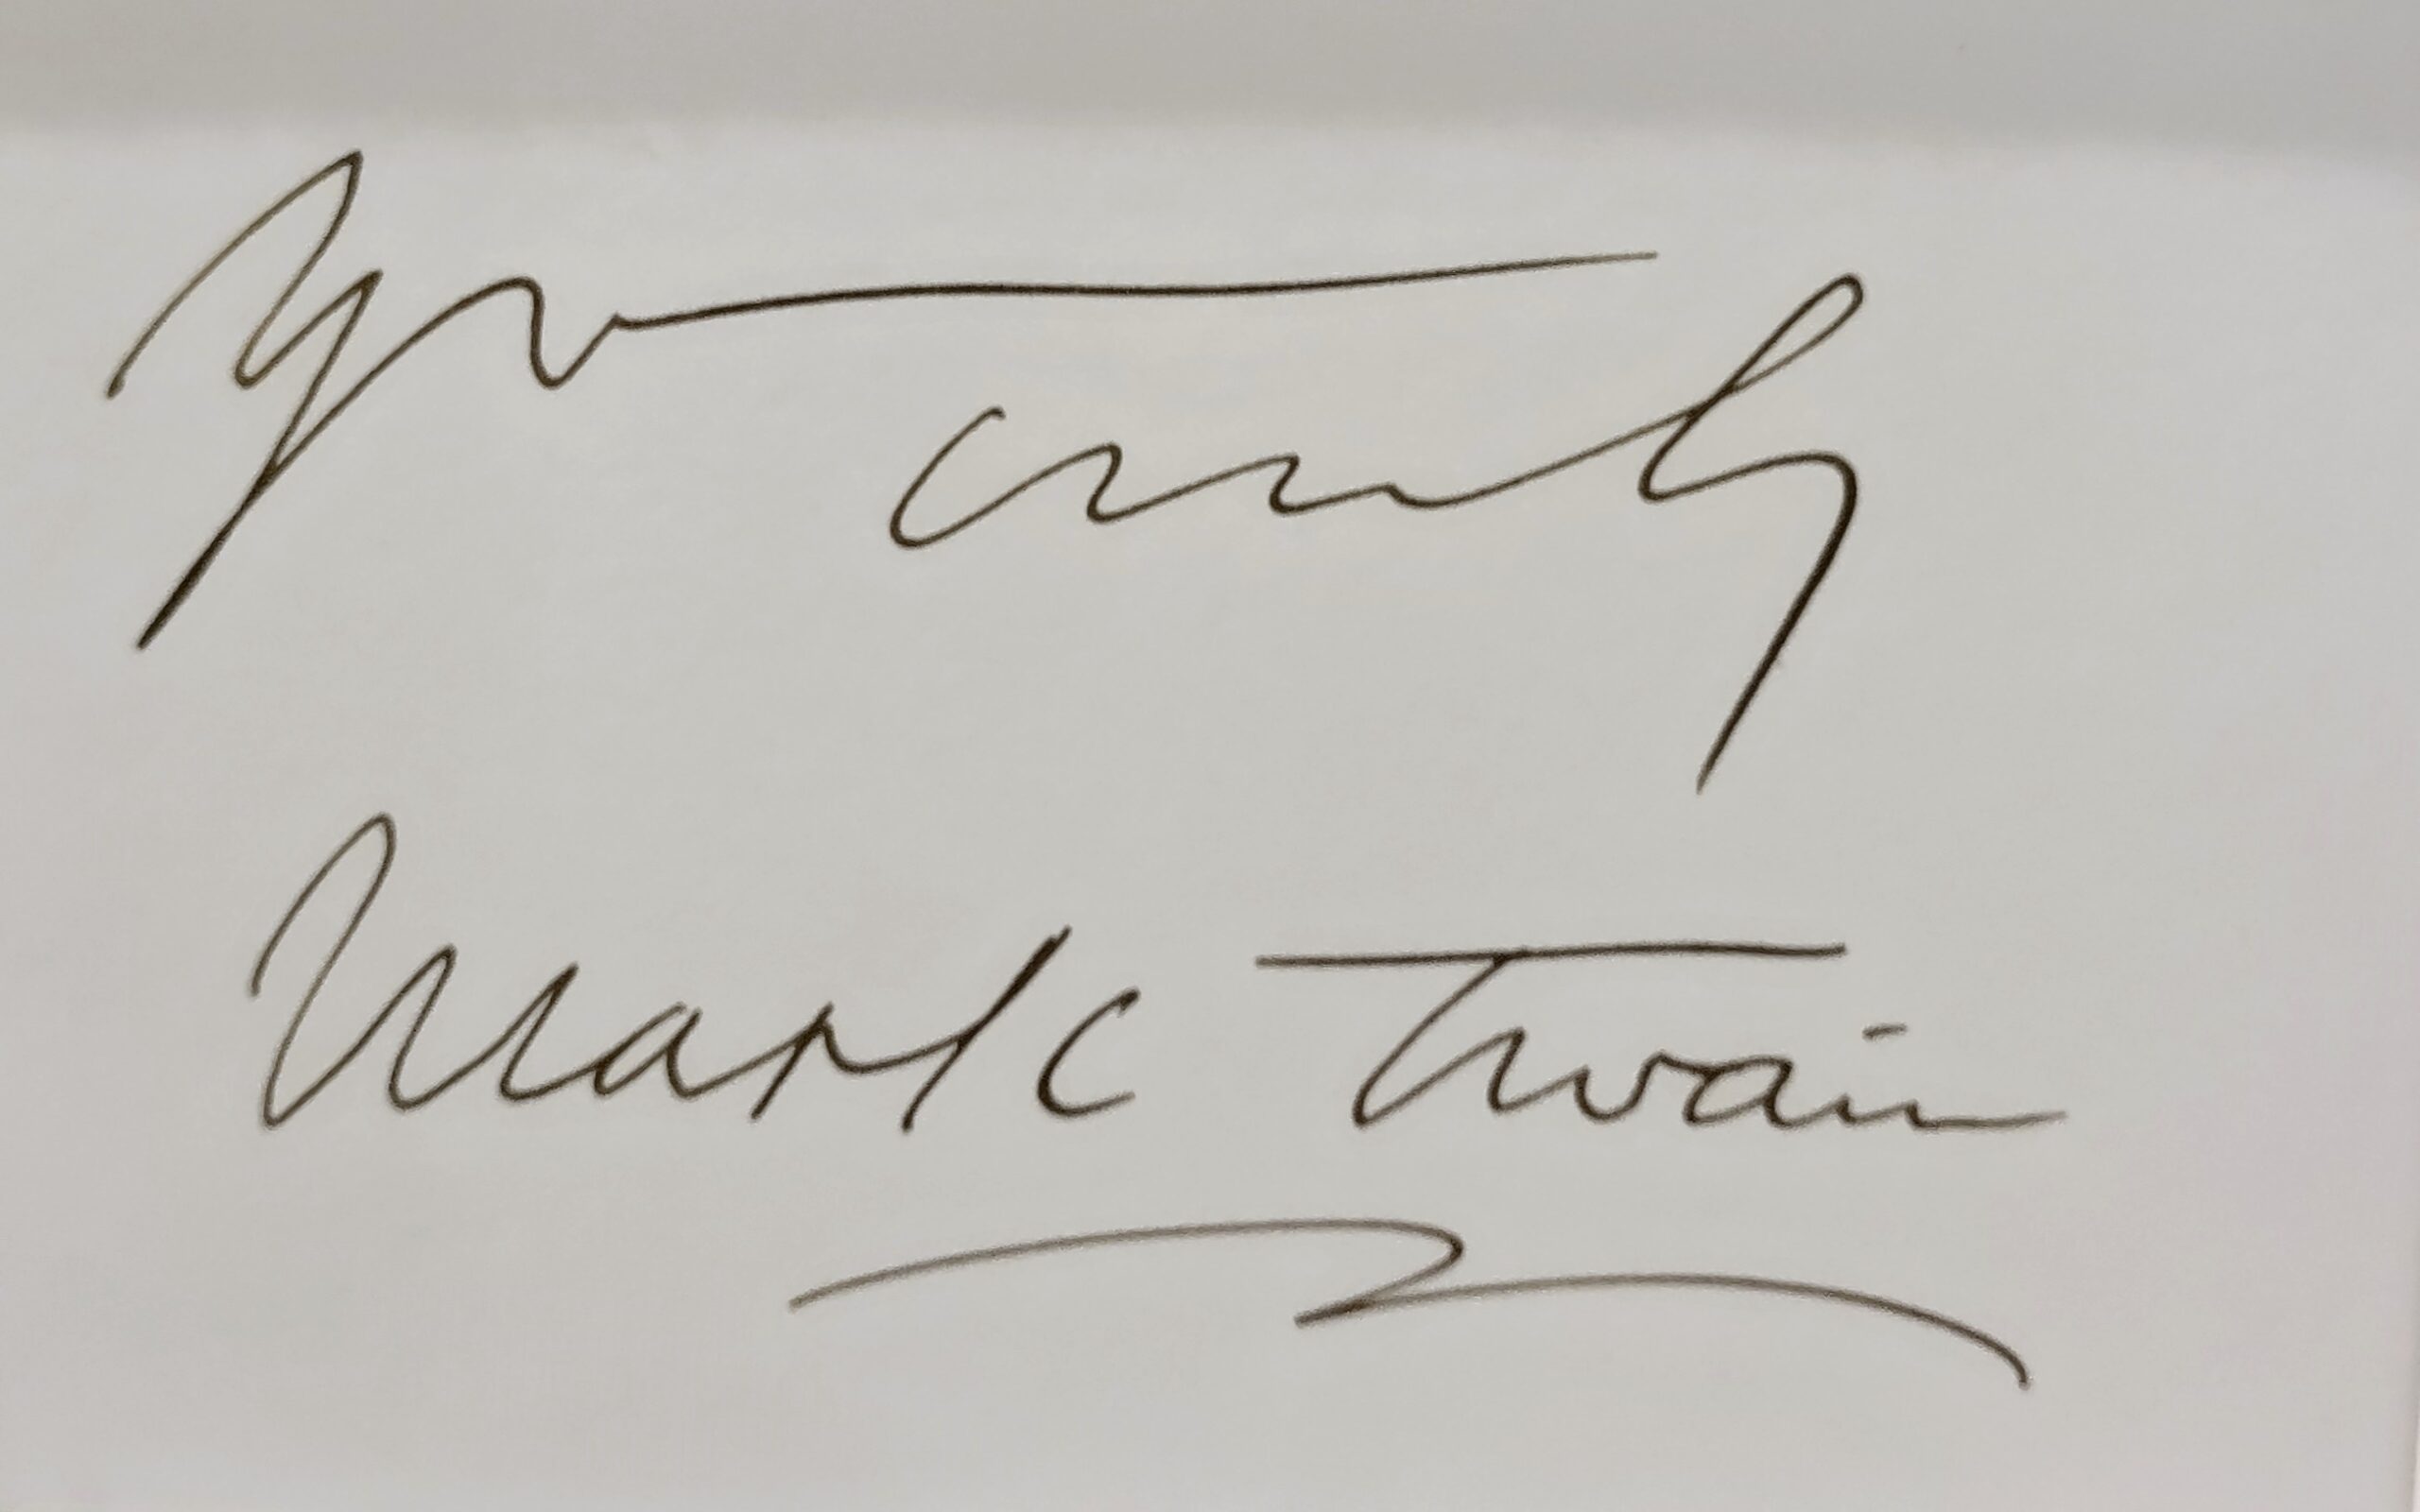 Yrs truly
Mark Twain